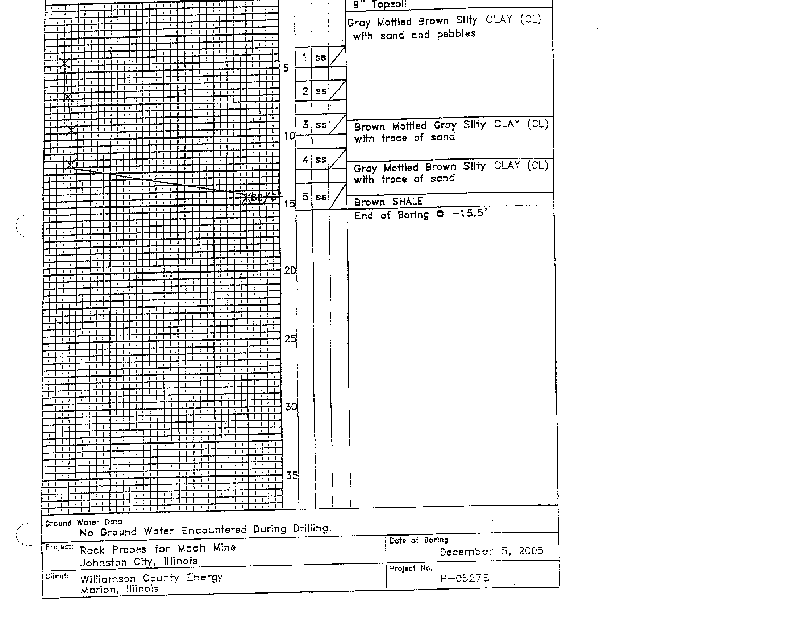 9" Topsoil
Gray Mottled Brown Silty CLAY (CL)
with sand and pebbles
1 ss
5
2 ss
3 ss
Brown Mottled Gray Silty CLAY (CL)
10
with trace of sand
4 ss
Gray Mottled Brown Silty CLAY (CL)
with trace of sand
5 ss
Brown SHALE
15
End of Boring @ -15.5'
20
25
30
35
Ground Water Data
No Ground Water Encountered During Drilling.
Project: Rock Probes for Mach Mine
Johnston City, Illinois
Date of Boring
December 5, 2005
Client: Williamson County Energy
Marion, Illinois
Project No.